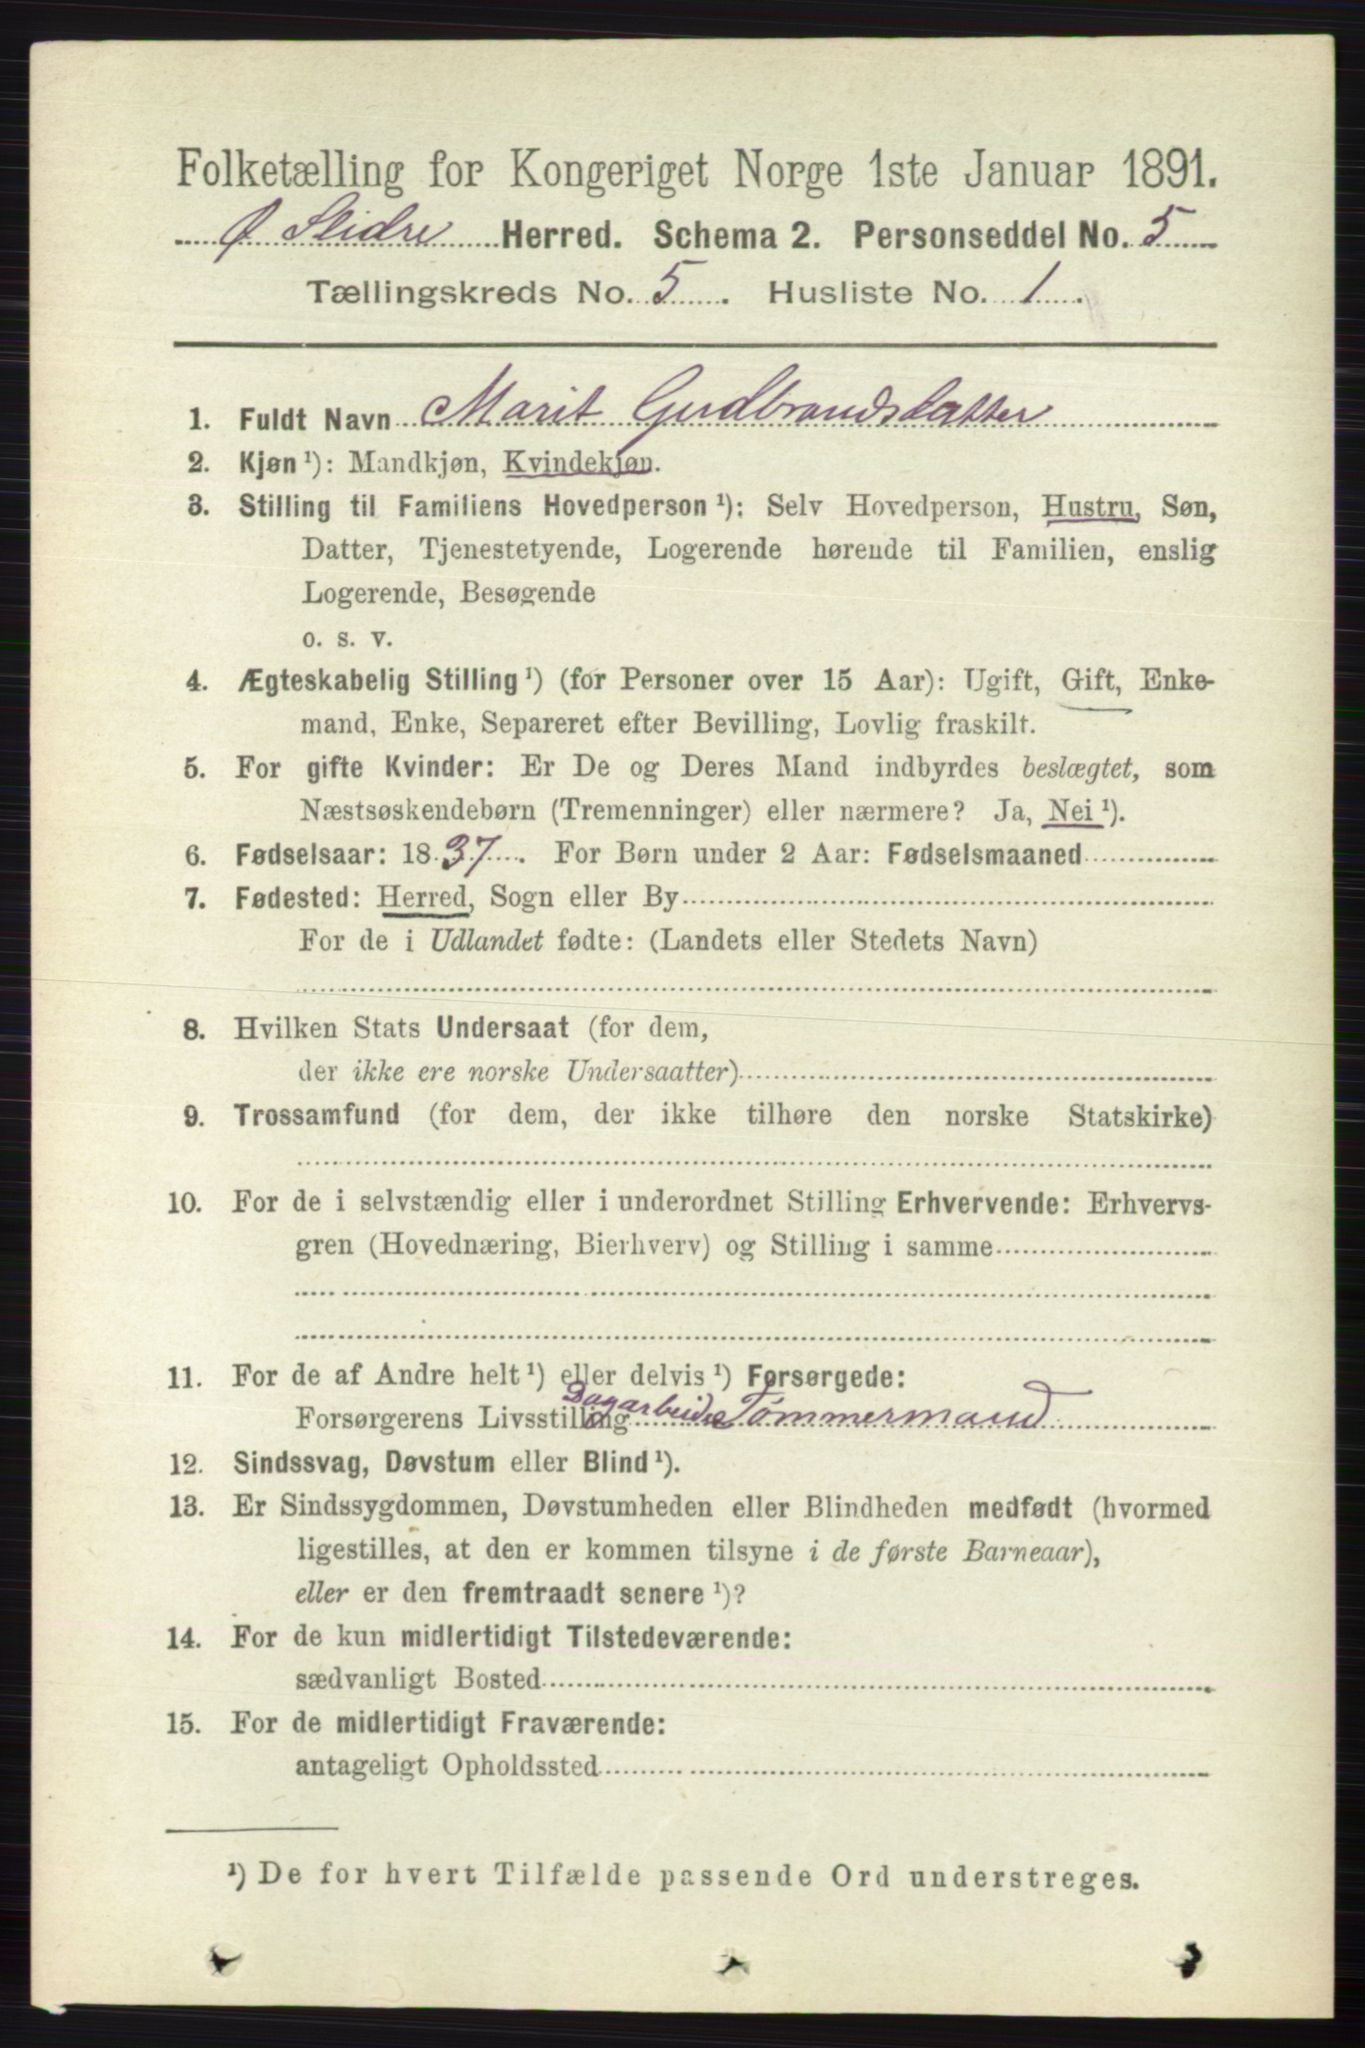 Folketælling for Kongeriget Norge 1ste Januar 1891.
Ø Slidre Herred. Schema 2. Personseddel No. 5
Tællingskreds No. 5. Husliste No. 1.
1. Fuldt Navn Marit Gudbrandsdatter
2. Kjøn ¹): Mandkjøn, Kvindekjøn.
3. Stilling til Familiens Hovedperson ¹): Selv Hovedperson, Hustru, Søn,
Datter, Tjenestetyende, Logerende hørende til Familien, enslig
Logerende, Besøgende
o. s. v.
4. Ægteskabelig Stilling ¹) (for Personer over 15 Aar): Ugift, Gift, Enke-
mand, Enke, Separeret efter Bevilling, Lovlig fraskilt.
5. For gifte Kvinder: Er De og Deres Mand indbyrdes beslægtet, som
Næstsøskendebørn (Tremenninger) eller nærmere? Ja, Nei ¹).
6. Fødselsaar: 1837. For Børn under 2 Aar: Fødselsmaaned
7. Fødested: Herred, Sogn eller By
For de i Udlandet fødte: (Landets eller Stedets Navn)
8. Hvilken Stats Undersaat (for dem,
der ikke ere norske Undersaatter)
9. Trossamfund (for dem, der ikke tilhøre den norske Statskirke)
10. For de i selvstændig eller i underordnet Stilling Erhvervende: Erhvervs-
gren (Hovednæring, Bierhverv) og Stilling i samme
11. For de af Andre helt ¹) eller delvis ¹) Forsørgede:
Forsørgerens Livsstilling Dagarbeider Tømmermand
12. Sindssvag, Døvstum eller Blind ¹).
13. Er Sindssygdommen, Døvstumheden eller Blindheden medfødt (hvormed
ligestilles, at den er kommen tilsyne i de første Barneaar),
eller er den fremtraadt senere ¹)?
14. For de kun midlertidigt Tilstedeværende:
sædvanligt Bosted
15. For de midlertidigt Fraværende:
antageligt Opholdssted
¹) De for hvert Tilfælde passende Ord understreges.